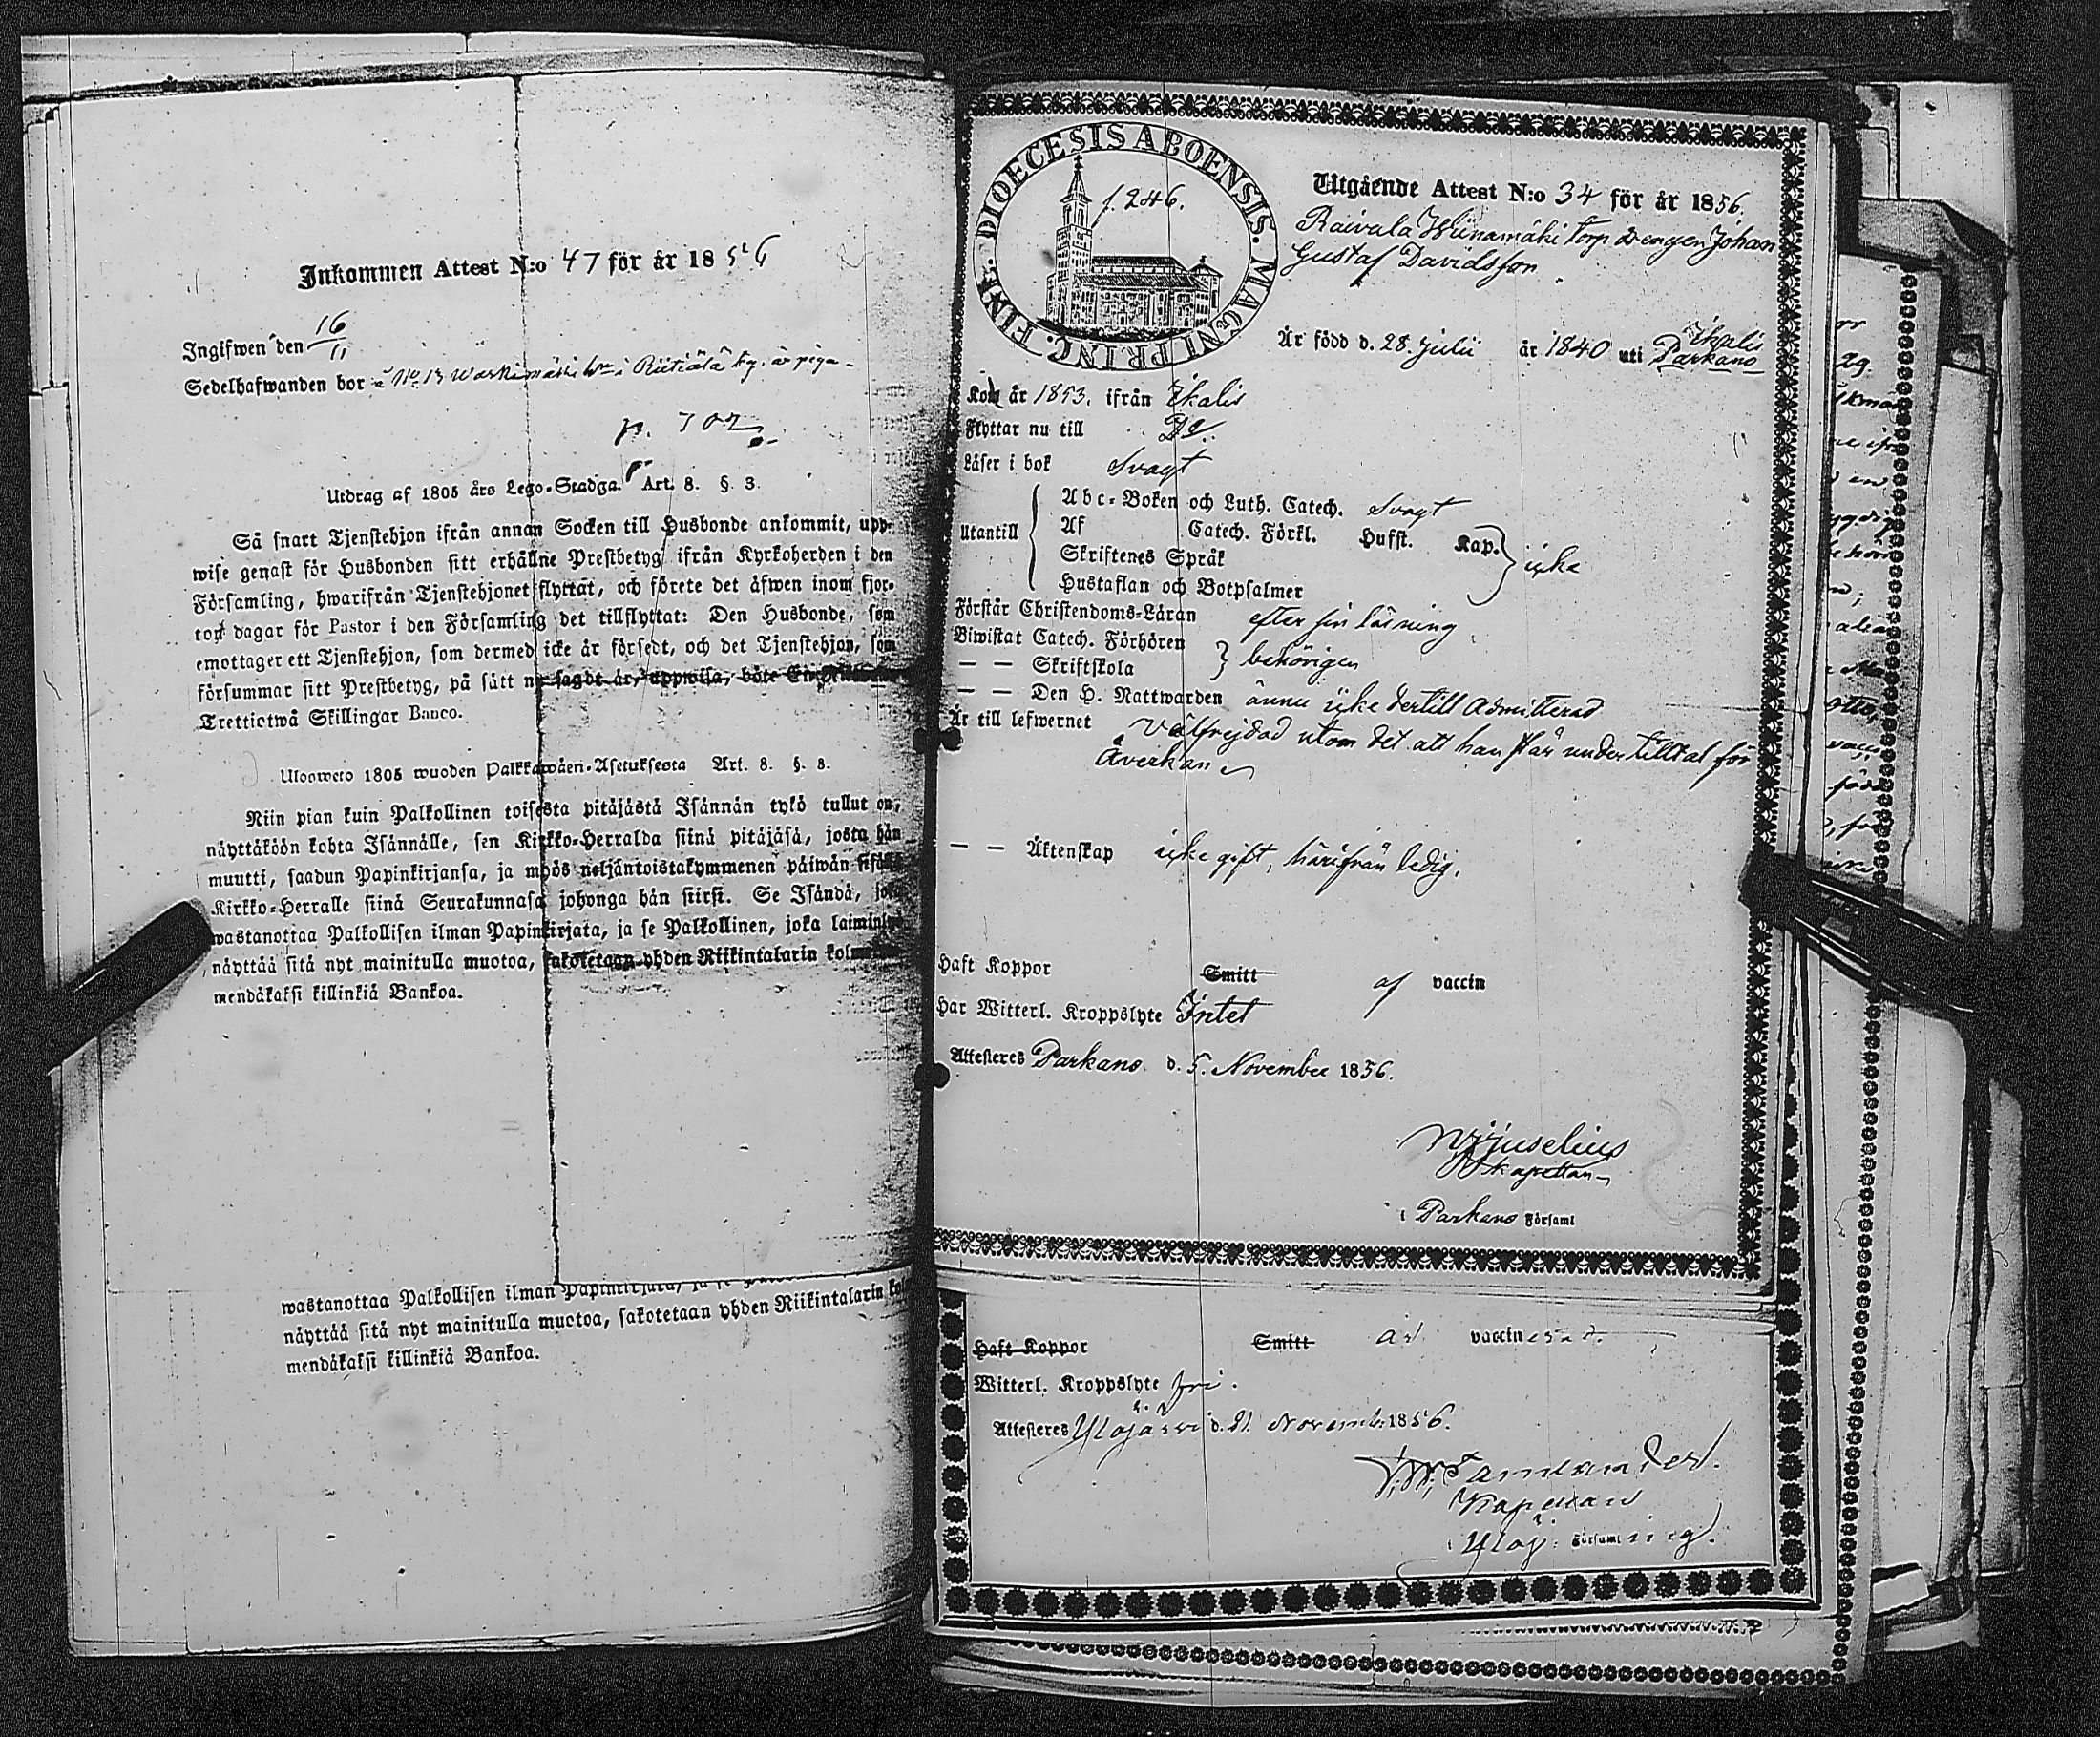 Inkommen Attest N:o 47 för år 1856
Ingifwen den 16/11
Sedelhafwanden bor å No 13
p. 702
Utdrag af 1805 års Lego-Stadga. Art. 8. §. 3.
Så snart Tjenstehjon ifrån annan Socken till Husbonde ankommit, upp-
wise genast för Husbonden sitt erhållne Prestbetyg ifrån Kyrkoherden i den
Församling, hwarifrån Tjenstehjonet flyttat, och förete det åfwen inom fjor-
ton dagar för Pastor i den Församling det tillflyttat: Den Husbonde, som
emottager ett Tjenstehjon, som dermed icke är försedt, och det Tjenstehjon, som
försummar sitt Prestbetyg, på sätt nu sagdt är, uppwisa, böte En
Trettiotwå Skillingar Banco.
Ulosweto 1805 wuoden Palkkawäen-Asetuksesta Art. 8. §. 3.
Niin pian kuin Palkollinen toisesta pitäjästä Isännän tykö tullut on,
näyttäköön kohta Isännälle, sen Kirkko-Herralda siinä pitäjäsä, josta hän
muutti, saadun Papinkirjansa, ja myös neljäntoistakymmenen päiwän
Kirkko-Herralle siinä Seurakunnasa johonga hän siirsi. Se Isändä,
wastanottaa Palkollisen ilman Papinkirjata, ja se Palkollinen, joka
näyttää sitä nyt mainitulla muotoa, sakotetaan yhden Riikintalarin
mendäkaksi killinkiä Bankoa.
wastanottaa Palkollisen ilman
näyttää sitä nyt mainitulla muotoa, sakotetaan yhden Riikintalarin
mendäkaksi killinkiä Bankoa.
DIOECESIS ABOENSIS. MAGNI PRINC. FINL.
f. 246.
Utgående Attest N:o 34 för år 1856.
Raivala Wiinamäki torp Drengen Johan
Gustaf Davidsson
Är född d. 28. Julii år 1840 uti Ikalis
Parkano
Kom år 1853. ifrån Ikalis
Flyttar nu till Do.
Läser i bok Svagt
Utantill
Abc-Boken och Luth. Catech. Svagt
Af Catech. Förkl. Hufst. Kap.
Skriftenes Språk
icke
Hustaflan och Botpsalmer
Förstår Christendoms-Läran efter sin läsning
Biwistat Catech. Förhören
— — Skriftskola behörigen
— — Den H. Nattwarden ännu icke dertill admitterad
Är till lefwernet välfrejdad utom det att han står under tilltal för
Åverkan
— — Äktenskap icke gift, härifrån ledig.
Haft Koppor Smitt af vaccin
Har Witterl. Kroppslyte Intet
Attesteres Parkano d. 5. November 1856.
Juselius
Kapellan
i Parkano Församl
Haft Koppor Smitt är vaccinerad.
Witterl. Kroppslyte fri.
Attesteres Ylöjärvi d. 21. Novemb. 1856.
Kapellan
i Ylöj: Församling.